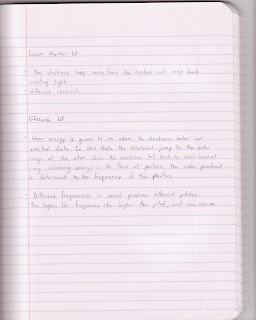 Learn 12
- The electrons jump away from the nucleus and jump back
creating light.
- different chemicals
12
- When energy is given to an atom the electrons enter an
excited state. In this state the electrons jump to the outer
rings of the atom. Then the electrons fall back to their normal
ring releasing energy in the form of photons. The color produced
is determined by the frequency of the photons.
- Different frequencies in sound produce different pitches.
The higher the frequency the higher the pitch, and vice versa.